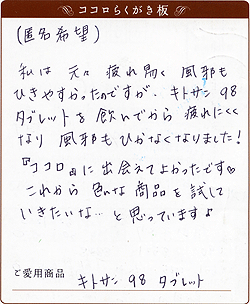 ココロらくがき板
(匿名希望)
私は 元々 疲れ易く 風邪も
ひきやすかったのですが、キトサン98
タブレットを 飲んでから 疲れにくく
なり 風邪も ひかなくなりました!
『ココロ』に 出会えてよかったです♡
これから 色いな 商品を 試して
いきたいな… と思っています♪
ご愛用商品
キトサン 98 タブレット